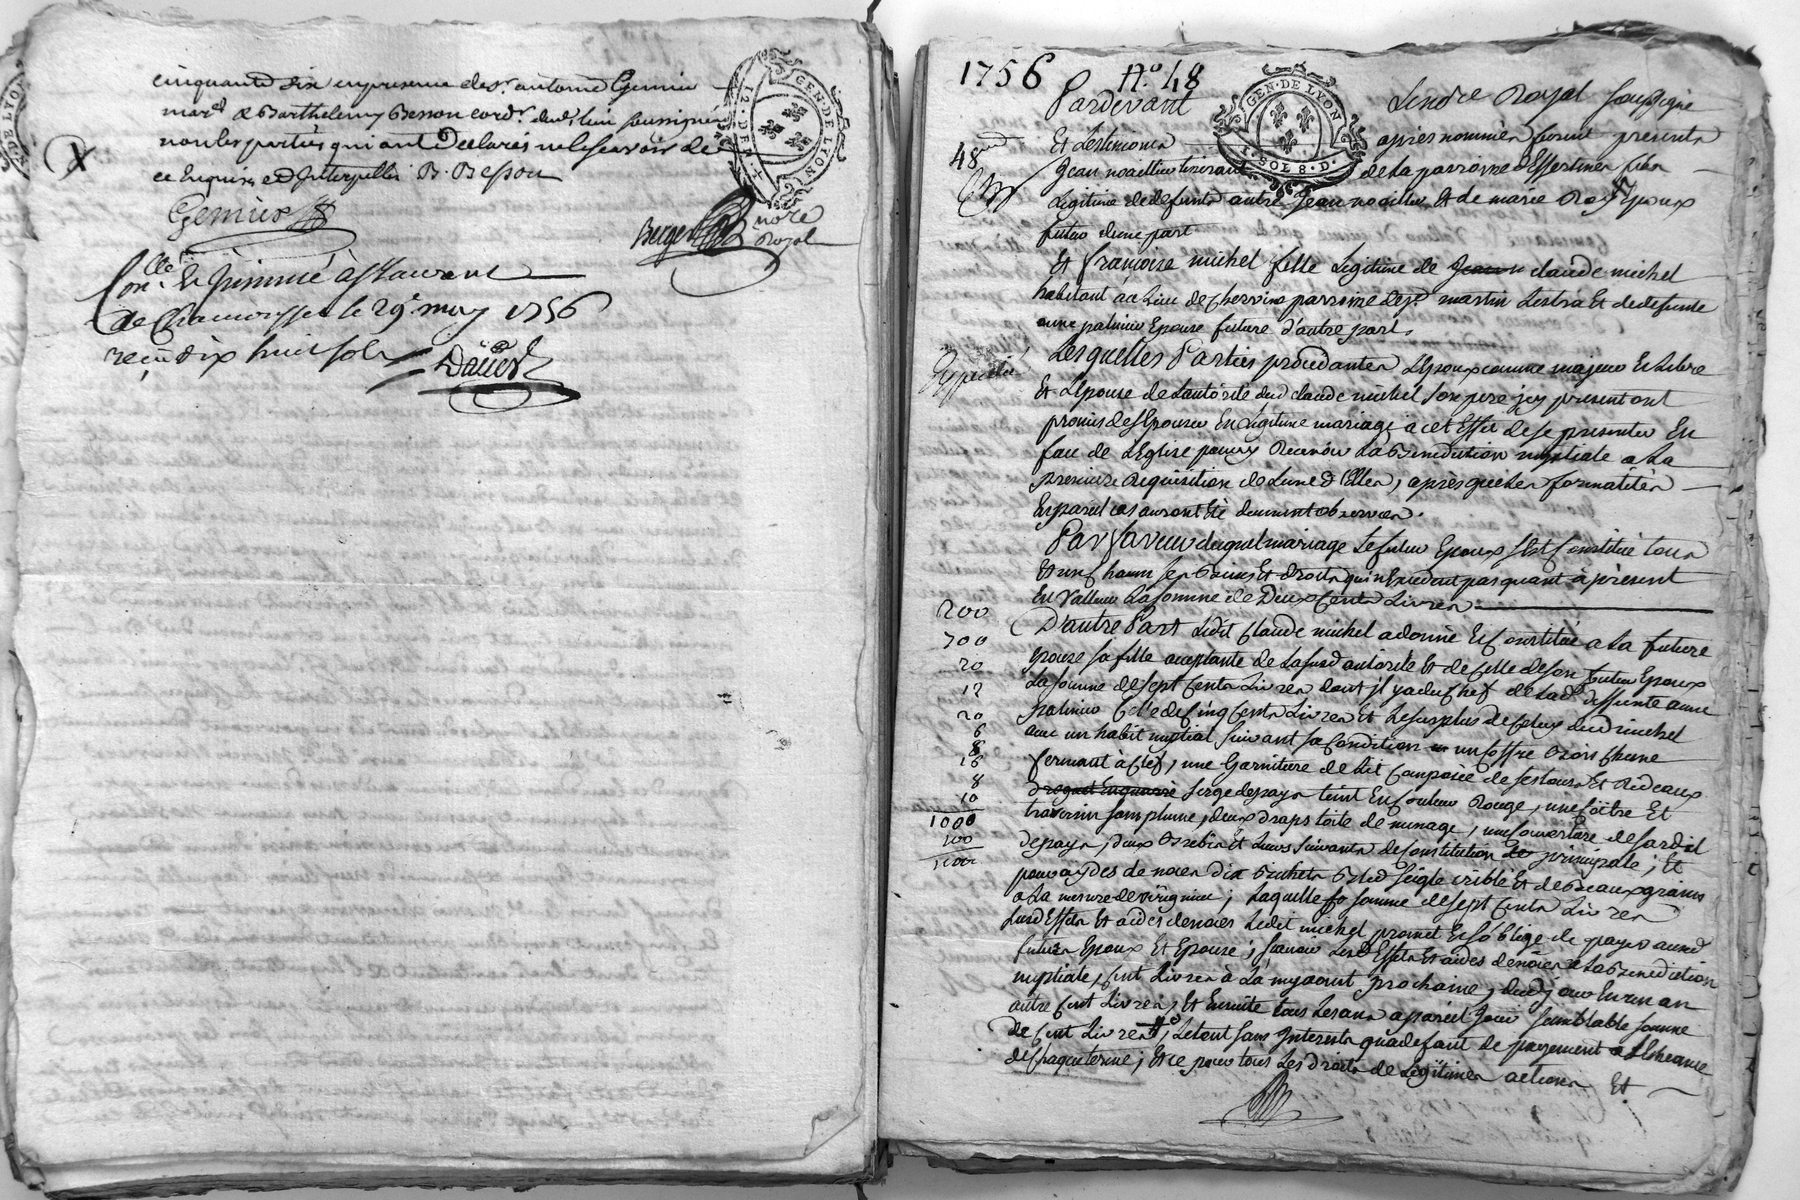 cinquante six en presence de sr. antoine Gemier
mard. & Barthelemy Besson cord. dud. lieu soussignés
non les parties qui ont Declarés ne le scavoir de
ce Enquises et Interpellés B. Besson
Gemier
Berger nore
Royal
GEN. DE LYON
Conllé. & Insinué à St Laurent
de Chamousset le 29e may 1756
reçu dix huit sols
1756 No. 48
Pardevant Lenore Royal soussigné
GEN. DE LYON
1. SOL 8. D.
48
Et Lestemoins apres nommés furent presents
Jean noaillieu de la parroisse d'Essertines fils
Légitime de defunts autre Jean noaillieu Et de marie Roy Epoux
futur d'une part
Et françoise michel fille Légitime de Jean claude michel
habitant au Lieu de parroisse de st. martin Lestra Et de defunte
anne palmier Epouse future d'autre part.
Expedié
Lesquelles Parties procedantes L'Epoux comme majeur Et Libre
Et L'Epouse de Lautorité dud claude michel son pere icy present ont
promis de s'Epouser En Légitime mariage à cet Effet de se presenter En
face de L'Eglise pour y Recevoir La Benediction nuptiale a La
premiere Requisition de L'une d'Elles, après que les formalités
En pareil cas auront Eté duement observées.
Par faveur duquel mariage Le futur Epoux s'Est Constitué tous
Et un Chacun ses Biens Et droits qui n'Excedent pas quant à présent
En Valleur La somme de Deux Cents Livres
200
D'autre Part Ledit Claude michel a donné Et Constitué a La future
700
Epouse sa fille acceptante de La susd autorité Et de Celle de son futur Epoux
20
La somme de sept Cents Livres dont il y a du Chef de Lad. deffunte anne
12
palmier Celle de Cinq Cents Livres Et Le surplus de Celuy dud michel
20
avec un habit nuptial suivant sa Condition un Coffre Bois Chene
6
8
fermant à Clef, une Garniture de Lit Composée de ses tours Et Rideaux
18
8
serge de pays teint En Couleur Rouge, une Coëtre Et
10
traversin sans plume, deux draps toile de menage, une Couverture de
1000
de pays, deux Brebis Et Leurs suivants de Constitution principale; Et
100
pour aydes de noces Dix Bichets Bled seigle Crible Et de Beaux grains
a La mesure de; Laquelle so somme de sept Cents Livres
Lesd Effets Et aides de noces Ledit michel promet Et s'oblige de payer auxd
futurs Epoux Et Epouse; scavoir Lesd Effets Et aides de noces a La Benediction
nuptiale, Cent Livres à La my aoust prochaine, dud. jour En un an
autre Cent Livres, Et Ensuite tous Les ans a pareil Jour semblable somme
de Cent Livres, Le tout sans Interests qu'a defaut de payement a L'Echeance
de Chaque terme; Et ce pour tous Les droits de Légitimes actions Et